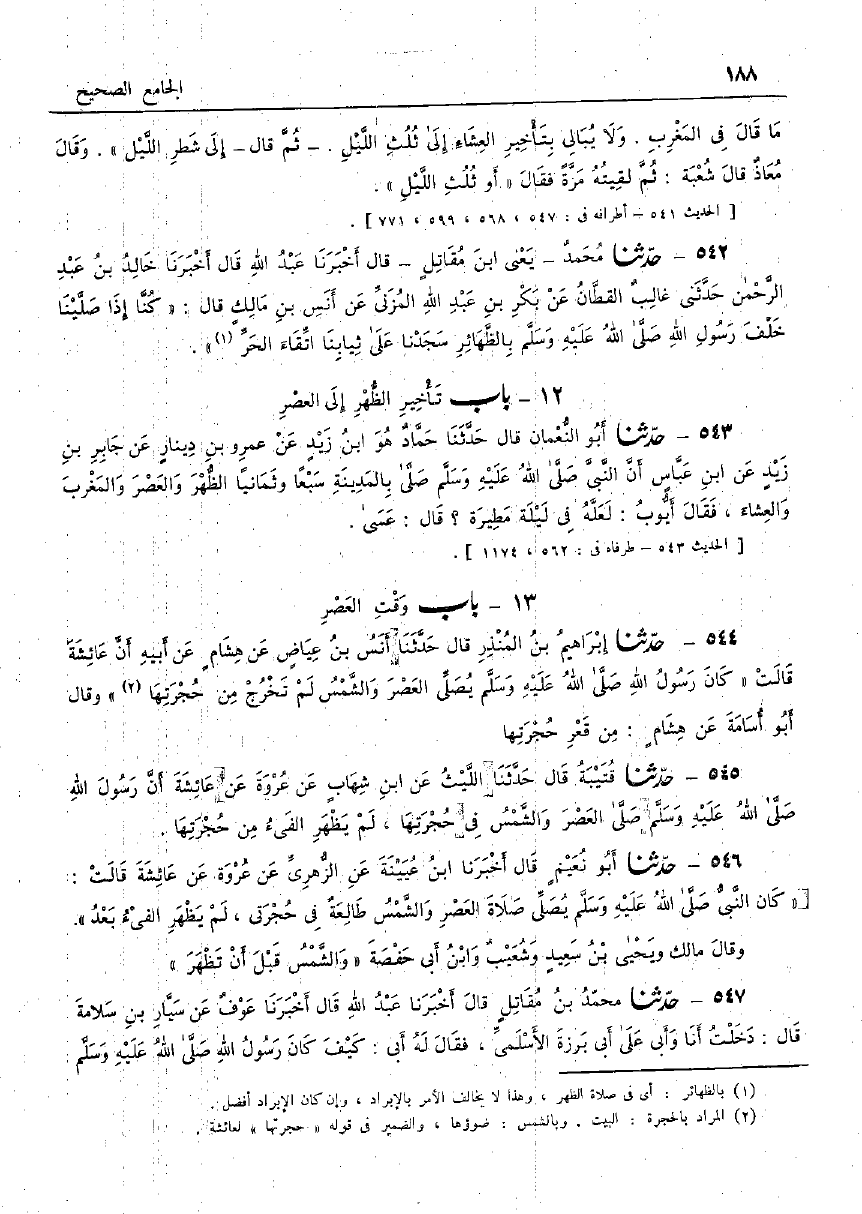 ١٨٨
الجامع الصحيح
مَا قَالَ فِى المَغْرِبِ . وَلَا يُبَالِى بِتَأْخِيرِ العِشَاءِ إِلَىٰ ثُلُثِ اللَّيْلِ . ــ ثُمَّ قال ــ إِلَى شَطْرِ اللَّيْلِ » . وَقَالَ
مُعَاذٌ قالَ شُعْبَة : ثُمَّ لَقِيتُهُ مَرَّةً فقالَ « أَو ثُلُثِ اللَّيْلِ » .
[ الحديث ٥٤١ – أطرافه فى : ٥٤٧ ، ٥٦٨ ، ٥٩٩ ، ٧٧١ ] .
٥٤٢ – حدّثنا مُحَمَدٌ – يَعْنى ابنَ مُقَاتِلٍ – قال أَخْبَرَنَا عَبْدُ اللهِ قال أَخْبَرَنَا خَالِدُ بنُ عَبْدِ
الرَّحْمٰن حَدَّثَنى غالِبٌ القطَّانُ عَنْ بَكْرِ بنِ عَبْدِ اللهِ المُزَنىِّ عَن أَنَسِ بنِ مَالِكٍ قال : « كُنَّا إِذَا صَلَّيْنَا
خَلْفَ رَسُولِ اللهِ صَلَّىٰ اللهُ عَلَيْهِ وَسَلَّم بِالظَّهَائِرِ سَجَدْنا عَلَىٰ ثِيابِنَا اتِّقاءَ الحَرِّ (١)» .
١٢ – باب تَأْخِيرِ الظُّهْرِ إِلَى العصْرِ
٥٤٣ – حدّثنا أَبُو النُّعْمان قال حَدَّثَنَا حَمَّادٌ هُوَ ابنُ زَيْدٍ عَنْ عمرو بنِ دِينارٍ عَن جَابِرِ بنِ
زَيْدٍ عَن ابنِ عَبَّاسٍ أَنَّ النَّبىَّ صَلَّىٰ اللهُ عَلَيْهِ وَسَلَّم صَلَّىٰ بِالمَدِينَةِ سَبْعًا وثَمَانيًا الظُّهْرَ وَالعَصْرَ وَالمَغْربَ
وَالعِشاء ، فَقَالَ أَيُّوبُ : لَعَلَّهُ فِى لَيْلَة مَطِيرَة ؟ قال : عَسَىٰ .
[ الحديث ٥٤٣ – طرفاه فى : ٥٦٢ ، ١١٧٤ ] .
١٣ – باب وَقْتِ العَصْرِ
٥٤٤ – حدّثنا إِبْرَاهيمُ بنُ المُنْذِرِ قال حَدَّثَنَا أَنَسُ بنُ عِيَاضٍ عَن هِشَامٍ عَن أَبيهِ أَنَّ عَائِشَةَ
قَالَتْ « كَانَ رَسُولُ اللهِ صَلَّىٰ اللهُ عَلَيْهِ وَسَلَّم يُصَلِّى العَصْرَ وَالشَّمْسُ لَمْ تَخْرُجْ مِن حُجْرَتِهَا (٢) » وقال
أَبُو أُسَامَةَ عَن هِشَامٍ : مِن قَعْرِ حُجْرَتِها
٥٤٥ – حدّثنا قُتَيْبَةُ قال حَدَّثَنَا اللَّيْثُ عَن ابنِ شِهَابٍ عَن عُرْوَةَ عَن عَائِشَةَ أَنَّ رَسُولَ اللهِ
صَلَّىٰ اللهُ عَلَيْهِ وَسَلَّم صَلَّىٰ العَصْرَ وَالشَّمْسُ فِى حُجْرَتِهَا ، لَمْ يَظْهَرِ الفَىءُ مِن حُجْرَتِهَا .
٥٤٦ – حدّثنا أَبُو نُعَيْمٍ قَالَ أَخْبَرَنا ابنُ عُيَيْنَةَ عَنِ الزُّهرىِّ عَن عُرْوَة عَن عائِشَةَ قالَتْ :
« كَان النَّبىُّ صَلَّىٰ اللهُ عَلَيْهِ وَسَلَّم يُصَلِّى صَلَاةَ العَصْرِ وَالشَّمْسُ طَالِعَةٌ فِى حُجْرَتِى ، لَمْ يَظْهَرِ الفىْءُ بَعْدُ ».
وقالَ مالك ويَحْيَىٰ بْنُ سَعِيدٍ وَشُعَيْبٌ وَابْنُ أَبى حَفْصَةَ «وَالشَّمْسُ قَبْلَ أَنْ تَظْهَرَ »
٥٤٧ – حدّثنا محمّدُ بنُ مُقَاتِلٍ قالَ أَخْبَرَنا عَبْدُ اللهِ قال أَخْبَرَنَا عَوْفٌ عَن سَيَّارِ بنِ سَلامةَ
قال : دَخَلْتُ أَنَا وَأَبى عَلَىٰ أَبى بَرزةَ الأَسْلَمىِّ ، فقالَ لَهُ أَبى : كَيْفَ كَانَ رَسُولُ اللهِ صَلَّىٰ اللهُ عَلَيْهِ وَسَلَّم
(١) بالظهائر : أى فى صلاة الظهر ، وهذا لا يخالف الأمر بالإبراد ، وإن كان الإبراد أفضل .
(٢) المراد بالحجرة : البيت . وبالشمس : ضوؤها ، والضمير فى قوله « حجرتها » لعائشة .